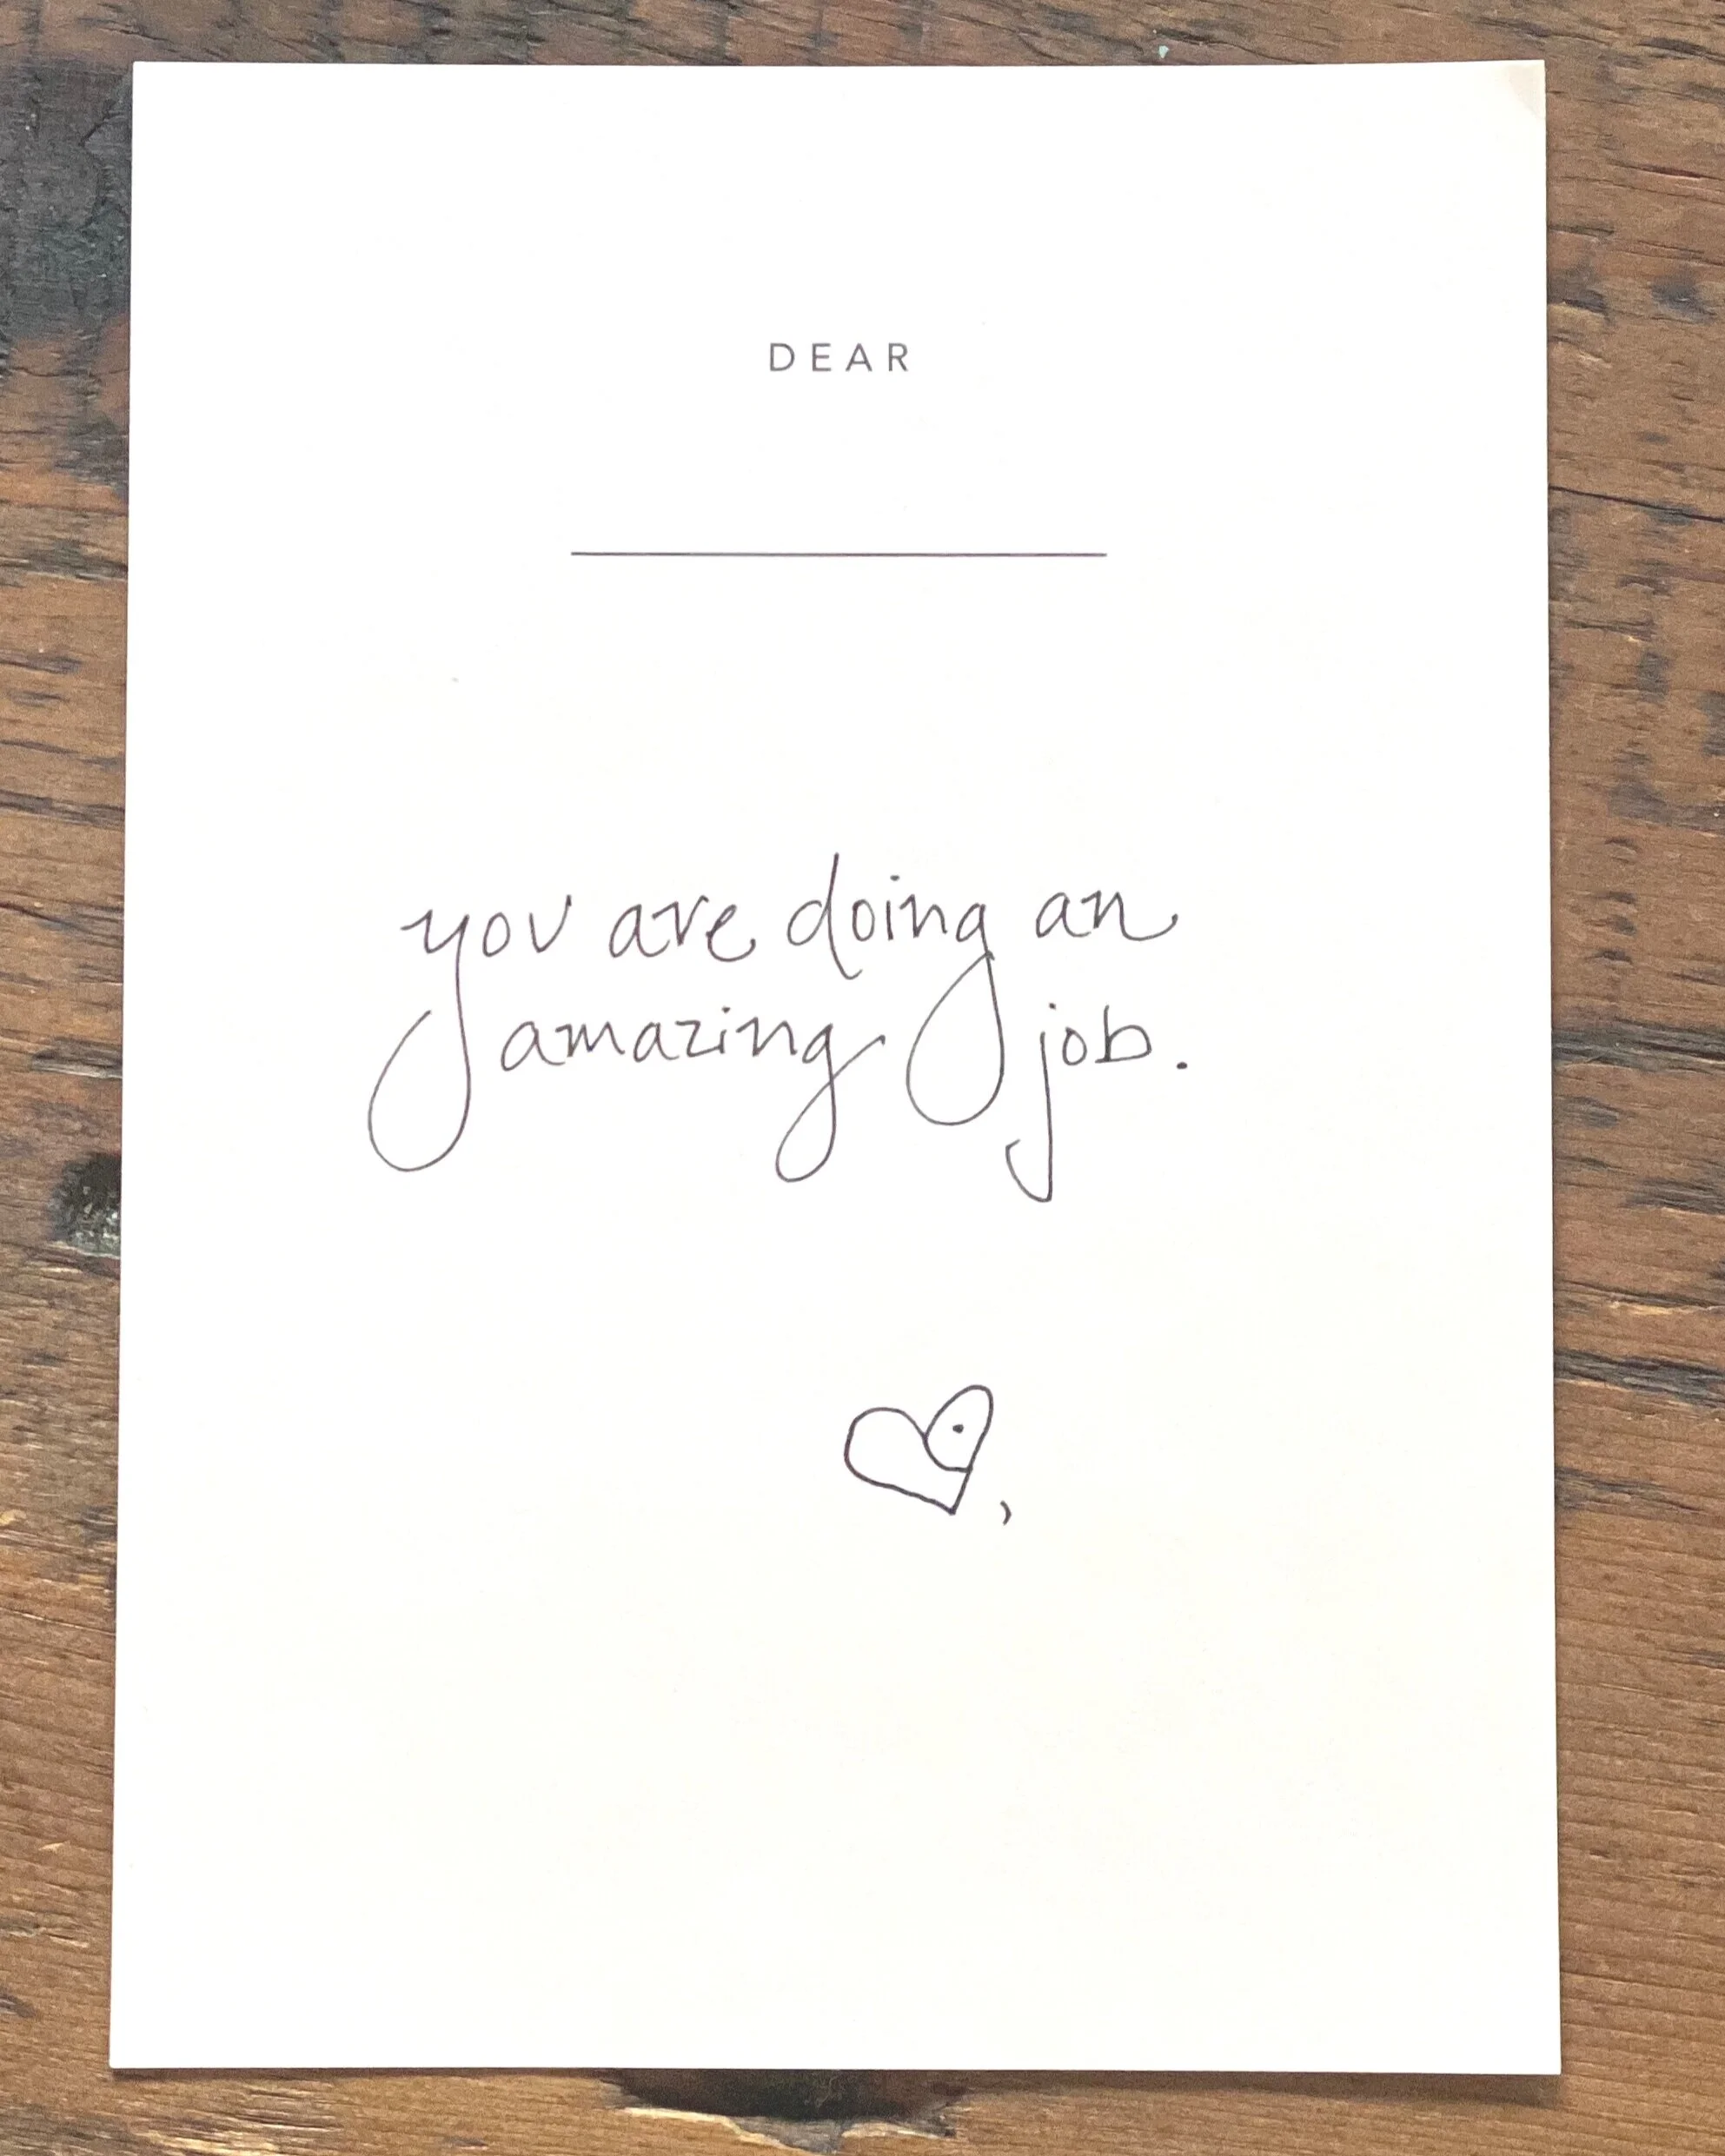 DEAR
you are doing an
amazing job.
,